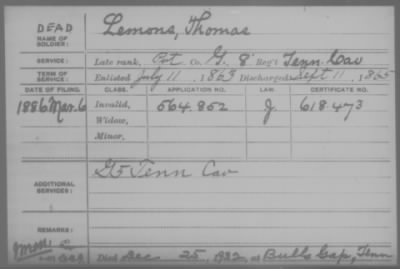 DEAD
NAME OF SOLDIER: Lemons, Thomas
SERVICE: Late rank, Pvt Co. G, 8 Reg't Tenn Cav
TERM OF SERVICE: Enlisted July 11, 1863 Discharged Sept 11, 1865
DATE OF FILING. CLASS. APPLICATION NO. LAW. CERTIFICATE NO.
1886 Mar. 6 Invalid, 564.852 J 618.473
Widow,
Minor,
ADDITIONAL SERVICES: G 5 Tenn Cav
REMARKS:
Died Dec 25, 1922, at Bulls Gap, Tenn